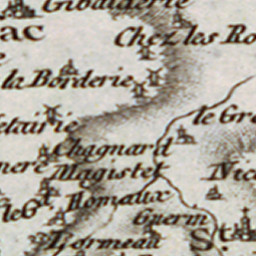 Gibauderie
ac
Chez les Ro
la Borderie
le Gr
etairie
Chagnard
nere Magistel
Nic
le Gd Homaux
Guerin
L'ormeau
St